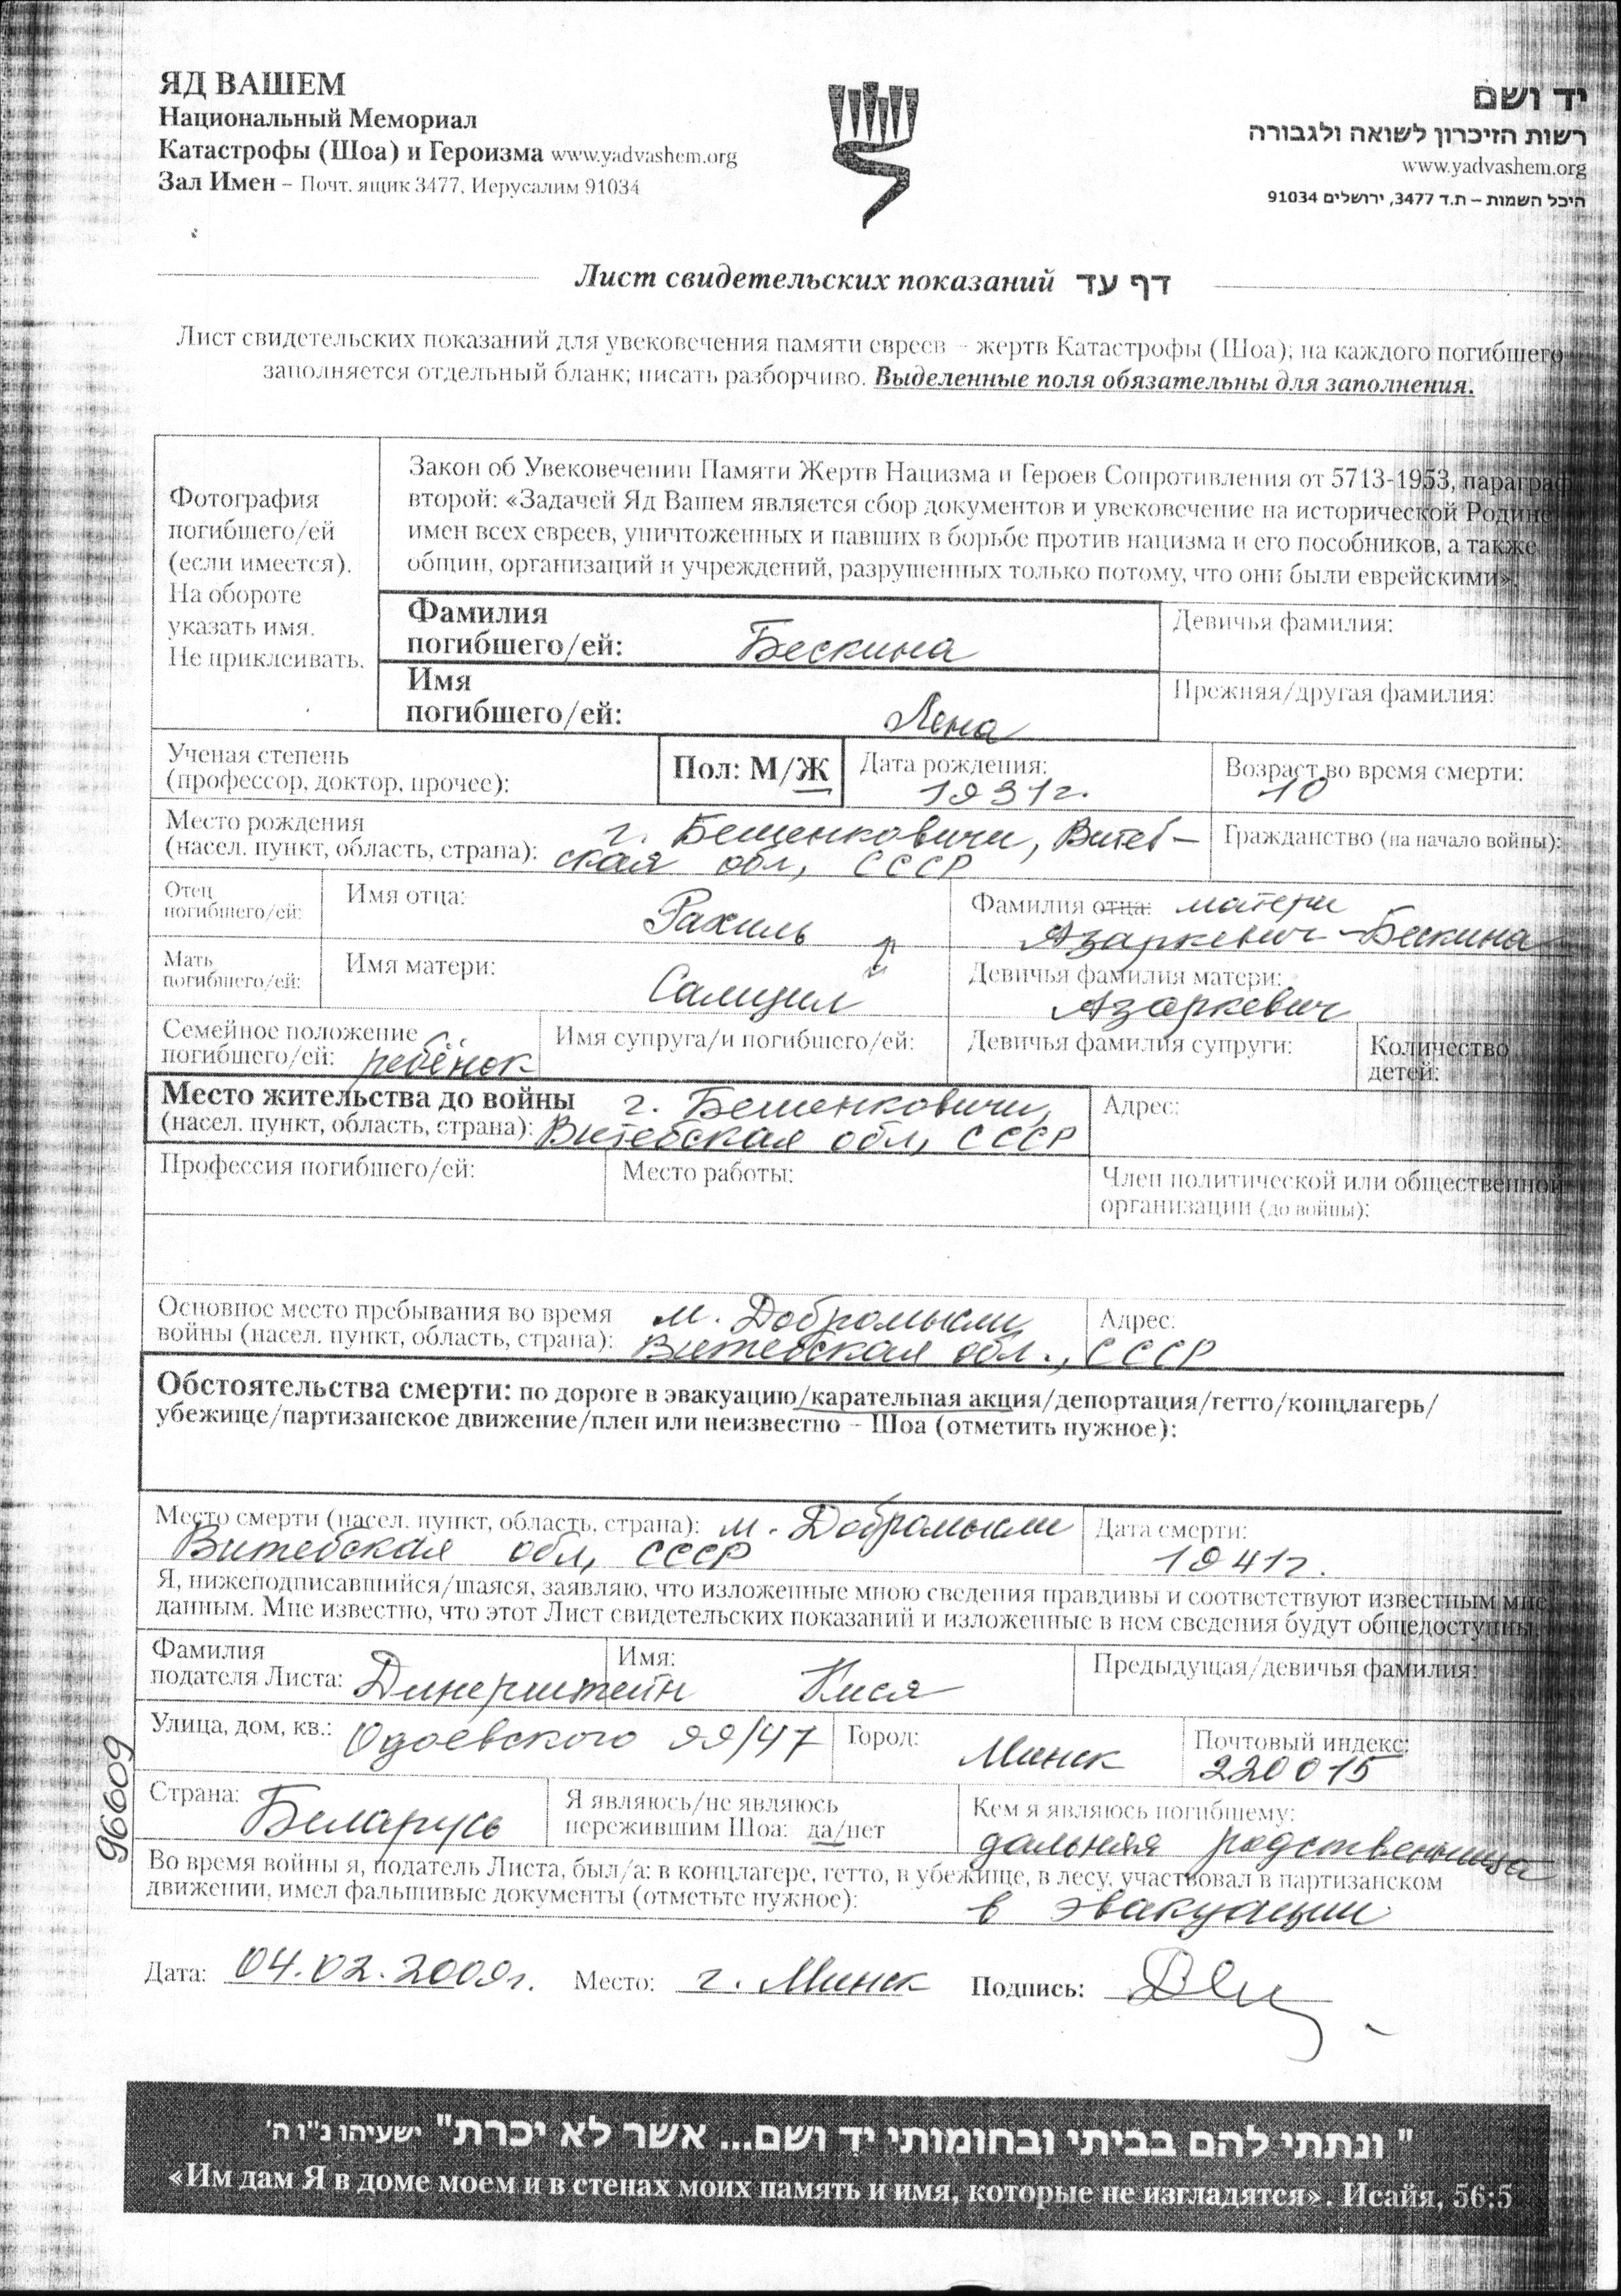 ЯД ВАШЕМ
Национальный Мемориал
Катастрофы (Шоа) и Героизма www.yadvashem.org
Зал Имен – Почт. ящик 3477, Иерусалим 91034
יד ושם
רשות הזיכרון לשואה ולגבורה
www.yadvashem.org
היכל השמות – ת.ד 3477, ירושלים 91034
Лист свидетельских показаний דף עד
Лист свидетельских показаний для увековечения памяти евреев – жертв Катастрофы (Шоа); на каждого погибшего
заполняется отдельный бланк; писать разборчиво. Выделенные поля обязательны для заполнения.
Фотография
погибшего/ей
(если имеется).
На обороте
указать имя.
Не приклеивать.
Закон об Увековечении Памяти Жертв Нацизма и Героев Сопротивления от 5713-1953, параграф
второй: «Задачей Яд Вашем является сбор документов и увековечение на исторической Родине
имен всех евреев, уничтоженных и павших в борьбе против нацизма и его пособников, а также
общин, организаций и учреждений, разрушенных только потому, что они были еврейскими».
Фамилия
погибшего/ей: Бескина
Девичья фамилия:
Имя
погибшего/ей: Лена
Прежняя/другая фамилия:
Ученая степень
(профессор, доктор, прочее):
Пол: М/Ж
Дата рождения:
1931г.
Возраст во время смерти:
10
Место рождения
(насел. пункт, область, страна): г. Бешенковичи, Витеб-
ская обл, СССР
Гражданство (на начало войны):
Отец
погибшего/ей:
Имя отца:
Рахиль
Фамилия отца: матери
Азаркевич-Бескина
Мать
погибшего/ей:
Имя матери:
Самуил
Девичья фамилия матери:
Азаркевич
Семейное положение
погибшего/ей: ребёнок
Имя супруга/и погибшего/ей:
Девичья фамилия супруги:
Количество
детей:
Место жительства до войны
(насел. пункт, область, страна): г. Бешенковичи,
Витебская обл, СССР
Адрес:
Профессия погибшего/ей:
Место работы:
Член политической или общественной
организации (до войны):
Основное место пребывания во время
войны (насел. пункт, область, страна): м. Добромысли
Витебская обл., СССР
Адрес:
Обстоятельства смерти: по дороге в эвакуацию/карательная акция/депортация/гетто/концлагерь/
убежище/партизанское движение/плен или неизвестно – Шоа (отметить нужное):
Место смерти (насел. пункт, область, страна): м. Добромысли
Витебская обл, СССР
Дата смерти:
1941г.
Я, нижеподписавшийся/шаяся, заявляю, что изложенные мною сведения правдивы и соответствуют известным мне
данным. Мне известно, что этот Лист свидетельских показаний и изложенные в нем сведения будут общедоступны.
Фамилия
подателя Листа: Динерштейн
Имя:
Кися
Предыдущая/девичья фамилия:
Улица, дом, кв.: Одоевского 99/47
Город:
Минск
Почтовый индекс:
220015
Страна:
Беларусь
Я являюсь/не являюсь
пережившим Шоа: да/нет
Кем я являюсь погибшему:
дальняя родственница
Во время войны я, податель Листа, был/а: в концлагере, гетто, в убежище, в лесу, участвовал в партизанском
движении, имел фальшивые документы (отметьте нужное): в эвакуации
96609
Дата: 04.02.2009г. Место: г. Минск Подпись:
" ונתתי להם בביתי ובחומותי יד ושם... אשר לא יכרת" ישעיהו נ"ו ה'
«Им дам Я в доме моем и в стенах моих память и имя, которые не изгладятся». Исайя, 56:5